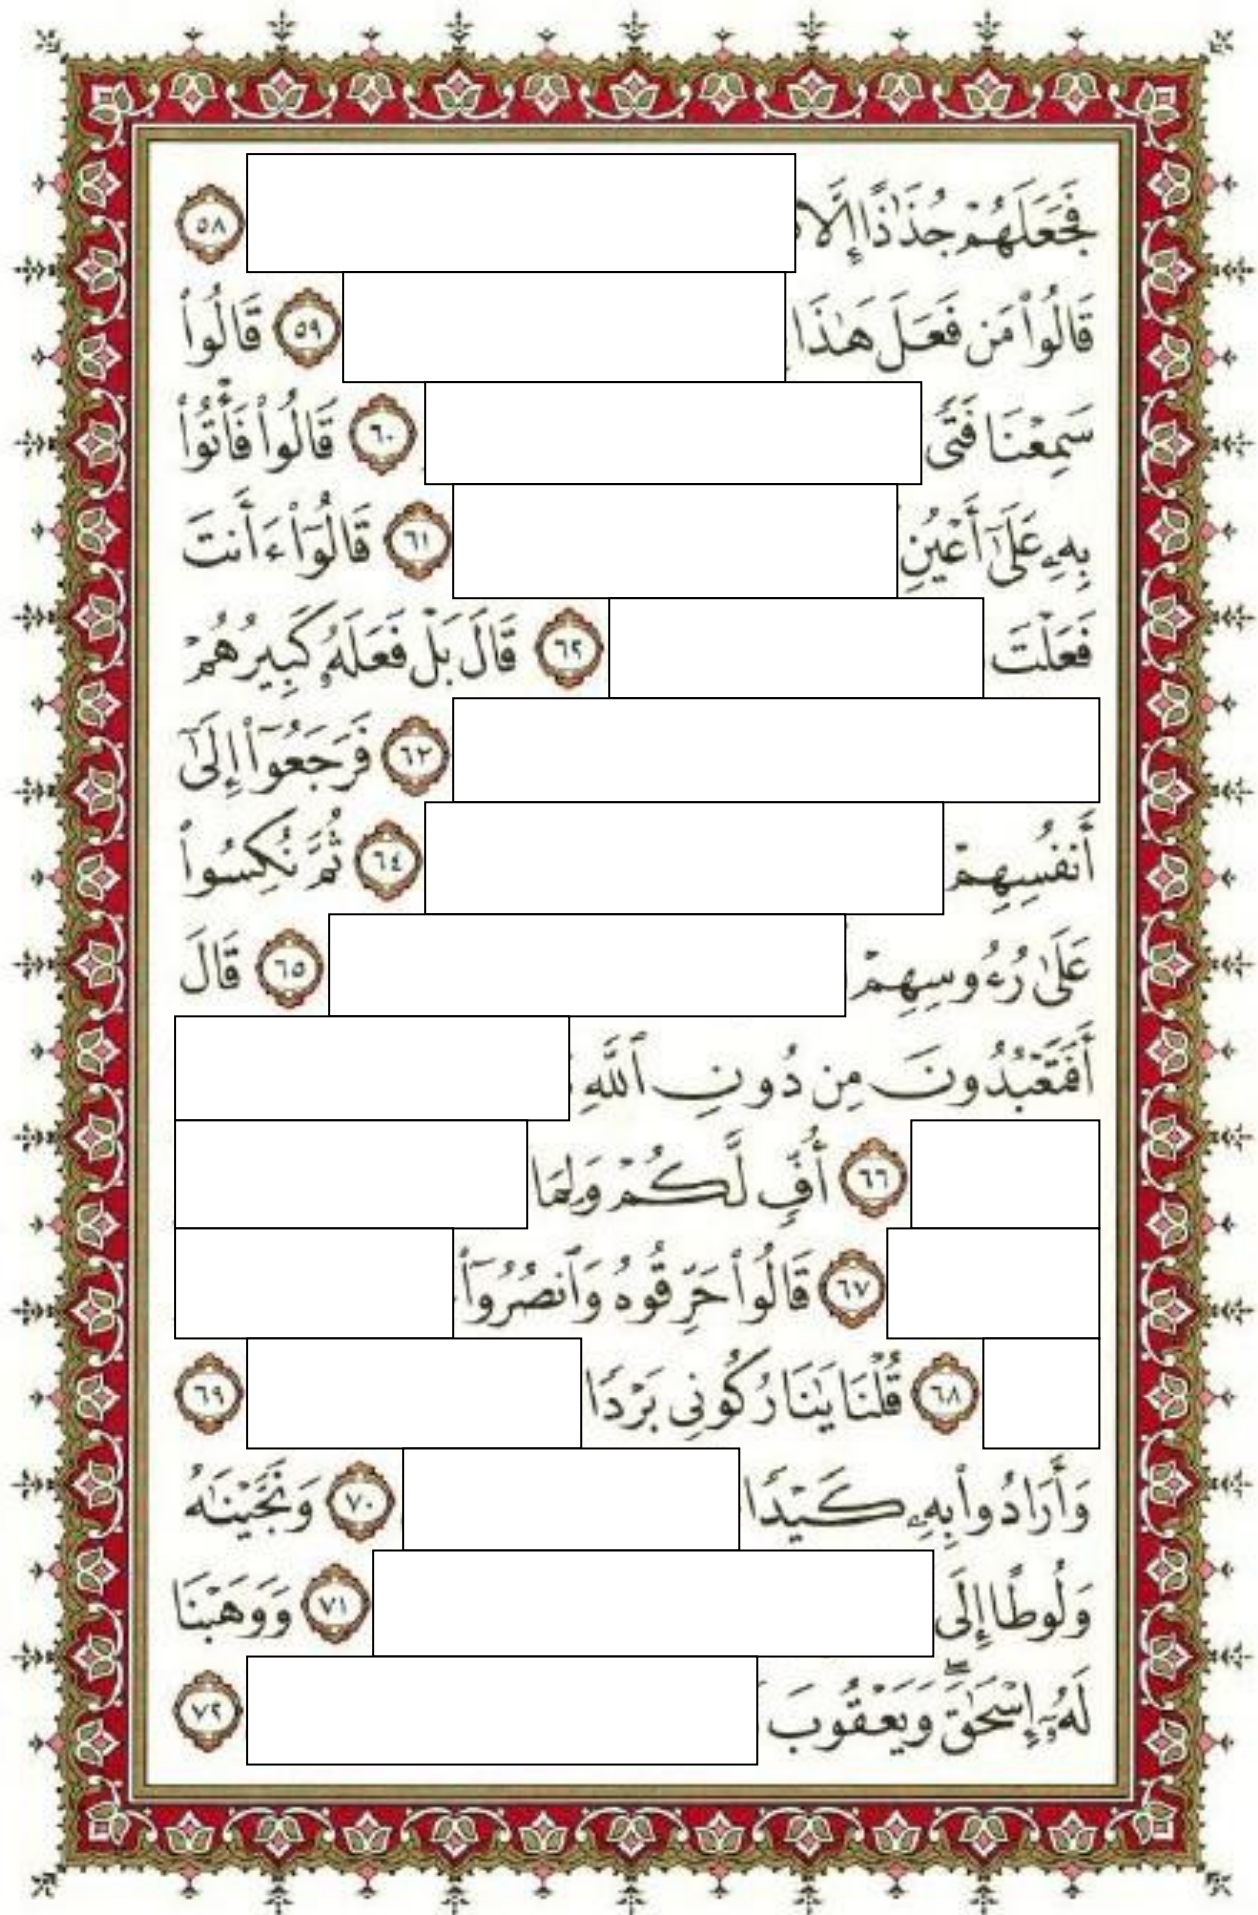 فَجَعَلَهُمْ جُذَٰذًا إِلَّا ٥٨
قَالُوا۟ مَن فَعَلَ هَٰذَا ٥٩ قَالُوا۟
سَمِعْنَا فَتًى ٦٠ قَالُوا۟ فَأْتُوا۟
بِهِۦ عَلَىٰٓ أَعْيُنِ ٦١ قَالُوٓا۟ ءَأَنتَ
فَعَلْتَ ٦٢ قَالَ بَلْ فَعَلَهُۥ كَبِيرُهُمْ
٦٣ فَرَجَعُوٓا۟ إِلَىٰٓ
أَنفُسِهِمْ ٦٤ ثُمَّ نُكِسُوا۟
عَلَىٰ رُءُوسِهِمْ ٦٥ قَالَ
أَفَتَعْبُدُونَ مِن دُونِ ٱللَّهِ
٦٦ أُفٍّ لَّكُمْ وَلِمَا
٦٧ قَالُوا۟ حَرِّقُوهُ وَٱنصُرُوٓا۟
٦٨ قُلْنَا يَٰنَارُ كُونِى بَرْدًا ٦٩
وَأَرَادُوا۟ بِهِۦ كَيْدًا ٧٠ وَنَجَّيْنَٰهُ
وَلُوطًا إِلَى ٧١ وَوَهَبْنَا
لَهُۥٓ إِسْحَٰقَ وَيَعْقُوبَ ٧٢